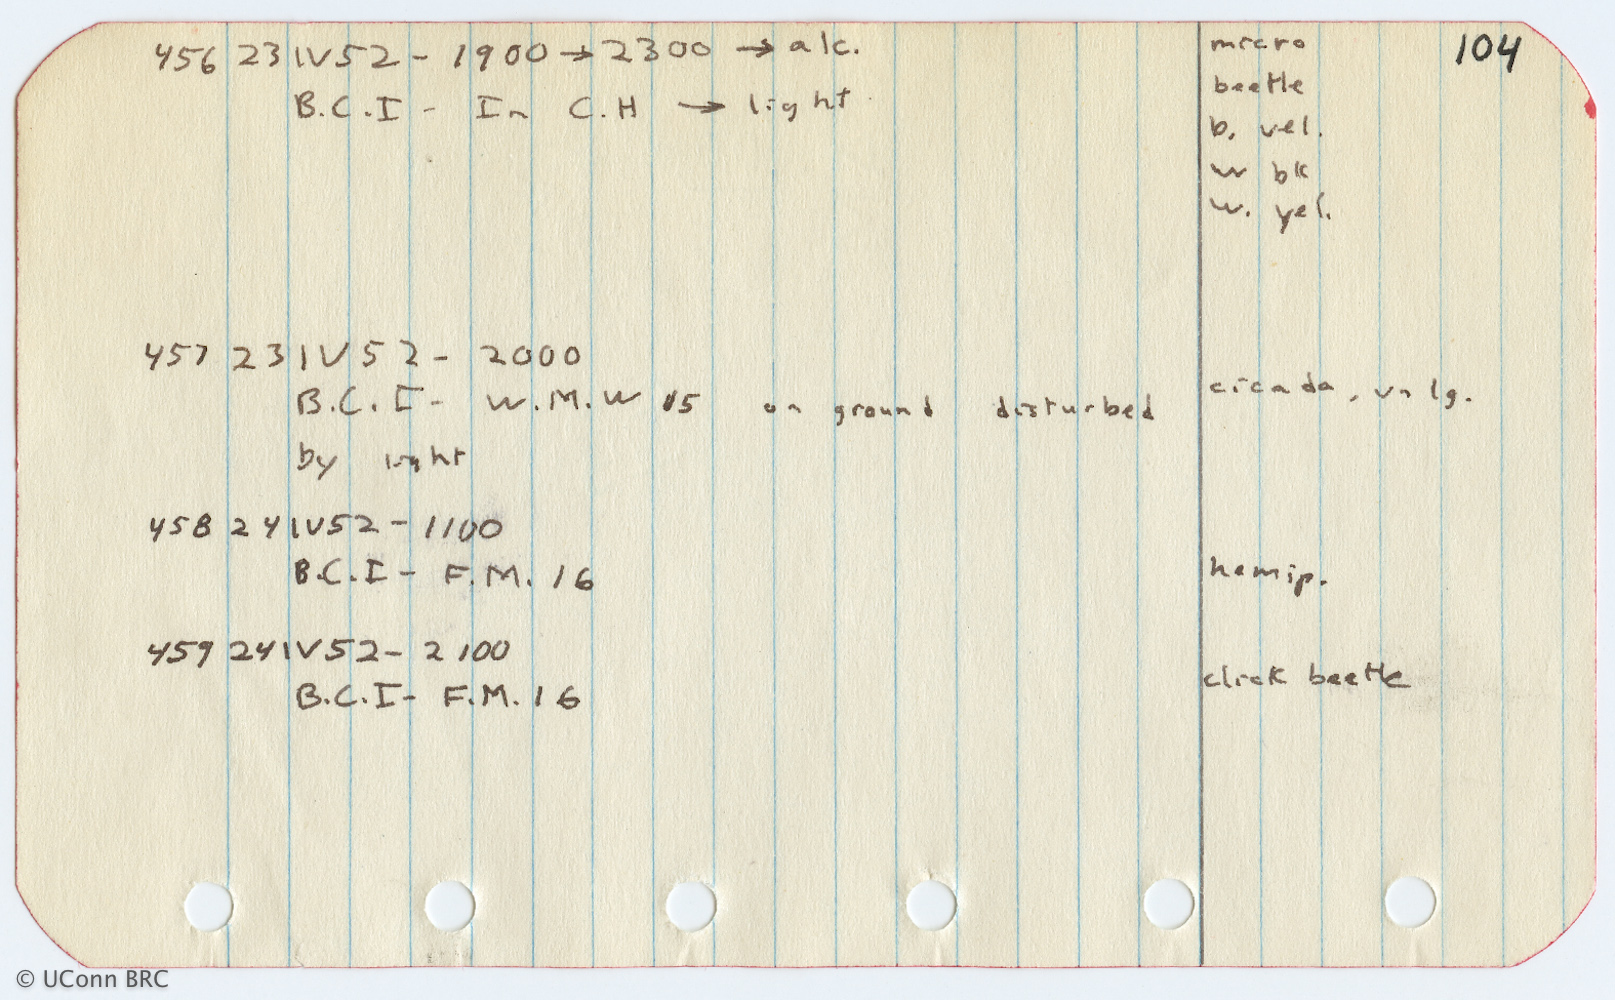 104
456 23IV52 - 1900 → 2300 → alc.
B.C.I - In C.H → light
micro
beetle
b. vel.
w bk
w. yel.
457 23IV52 - 2000
B.C.I - W.M.W 15 on ground disturbed
by light
cicada, vn lg.
458 24IV52 - 1100
B.C.I - F.M. 16
hemip.
459 24IV52 - 2100
B.C.I - F.M. 16
click beetle
© UConn BRC